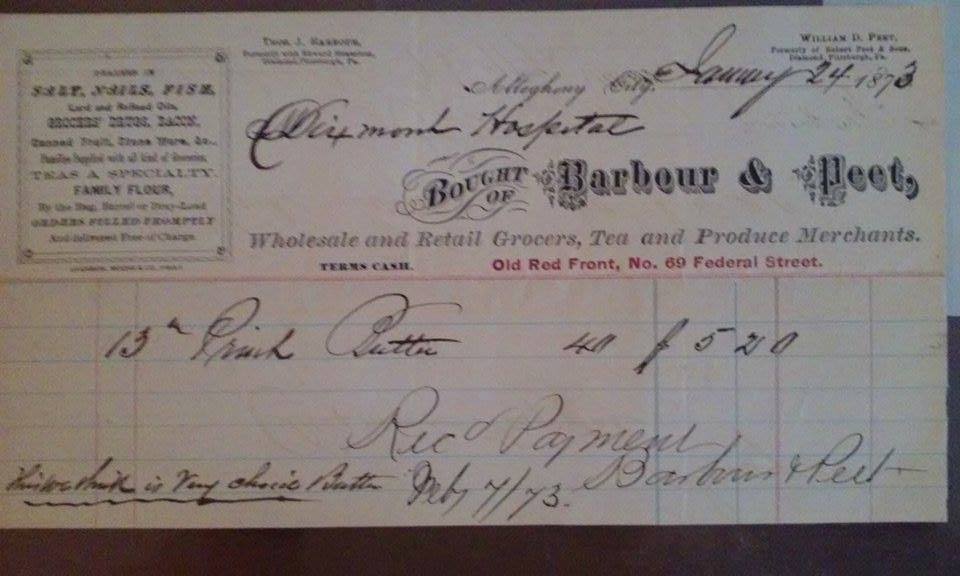 DEALERS IN
SALT, NAILS, FISH,
Lard and Refined Oils,
GROCERS' DRUGS, BACON,
Canned Fruit, Stone Ware, &c.,
Families Supplied with all kind of Groceries.
TEAS A SPECIALTY.
FAMILY FLOUR,
By the Bag, Barrel or Dray-Load
ORDERS FILLED PROMPTLY
And delivered Free of Charge.
THOS. J. BARBOUR,
Formerly with Edward
Diamond, Pittsburgh, Pa.
WILLIAM D. PEET,
Formerly of Robert Peet & Sons,
Diamond, Pittsburgh, Pa.
Allegheny City, January 24 1873
Dixmont Hospital
BOUGHT OF Barbour & Peet,
Wholesale and Retail Grocers, Tea and Produce Merchants.
TERMS CASH. Old Red Front, No. 69 Federal Street.
13 Butter 40 $ 5 20
Rec'd Payment
Barbour & Peet
Feby 7/73.
This we think is very choice Butter